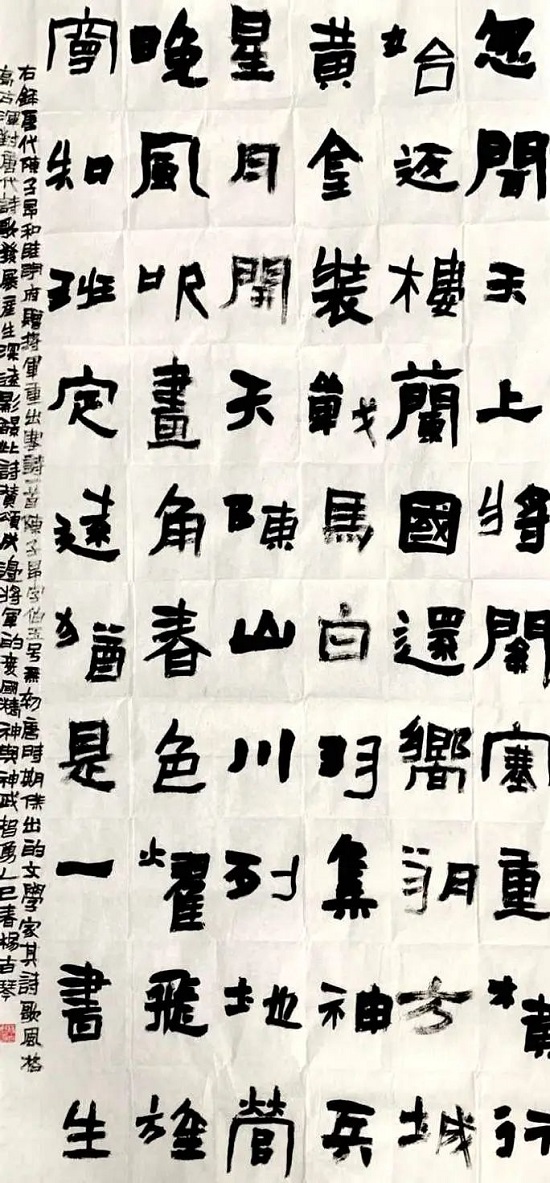 忽聞天上將關塞重橫行
始返樓蘭國還嚮朔方城
黃金裝戰馬白羽集神兵
星月開天陳山川列地營
晚風吹畫角春色耀飛旌
寧知班定遠猶是一書生
右錄唐代陳子昂和陸明府贈將軍重出塞詩一首陳子昂字伯玉初唐時期傑出的文學家其詩歌風格
高古渾對唐代詩歌發展產生深遠影響此詩贊頌戍邊將軍的愛國精神與神武智勇乙巳春楊古琴